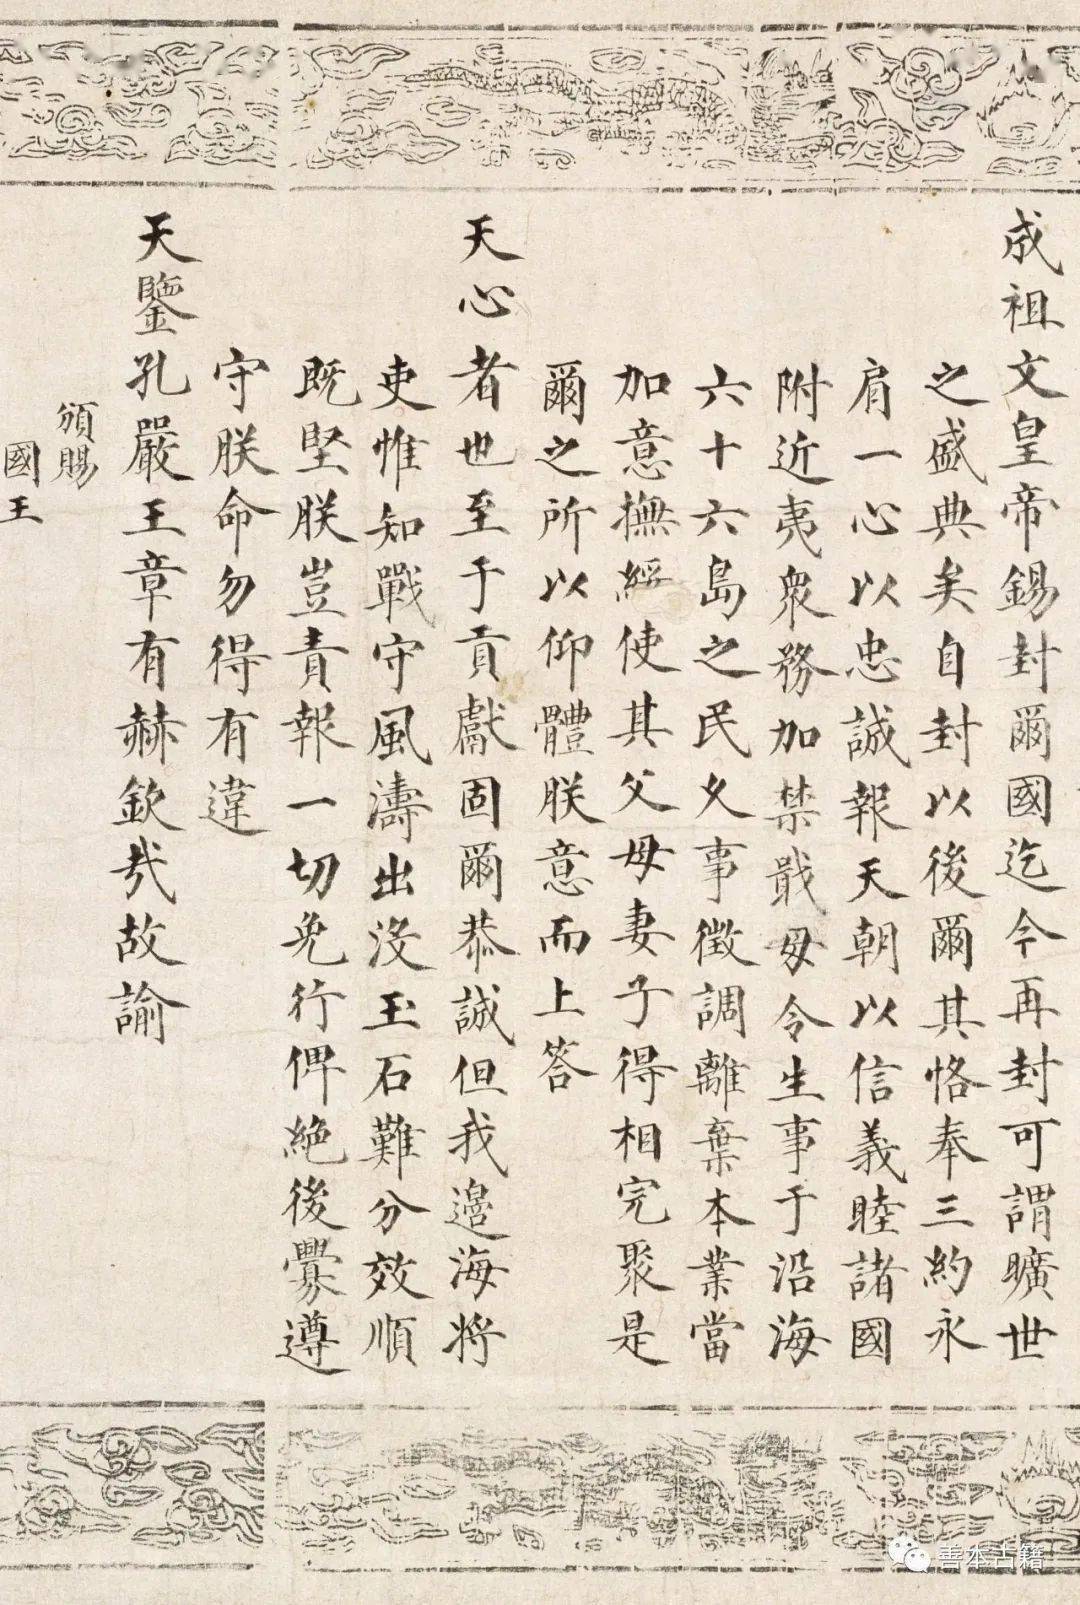 成祖文皇帝錫封爾國迄今再封可謂曠世
之盛典矣自封以後爾其恪奉三約永
肩一心以忠誠報天朝以信義睦諸國
附近夷衆務加禁戢毋令生事于沿海
六十六島之民久事徵調離棄本業當
加意撫綏使其父母妻子得相完聚是
爾之所以仰體朕意而上答
天心者也至于貢獻固爾恭誠但我邊海將
吏惟知戰守風濤出沒玉石難分效順
既堅朕豈責報一切免行俾絕後釁遵
守朕命勿得有違
天鑒孔嚴王章有赫欽哉故諭
頒賜
國王
善本古籍